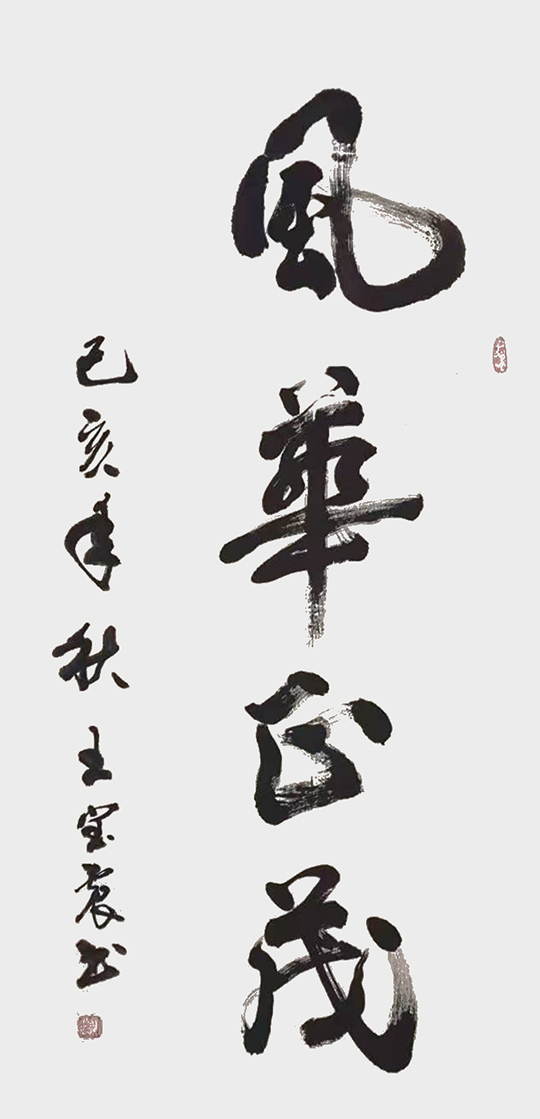 風華正茂
己亥年秋王宝震书